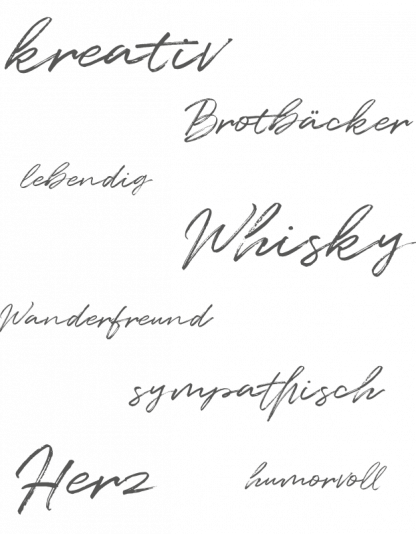 kreativ
Brotbäcker
lebendig
Whisky
Wanderfreund
sympathisch
Herz
humorvoll